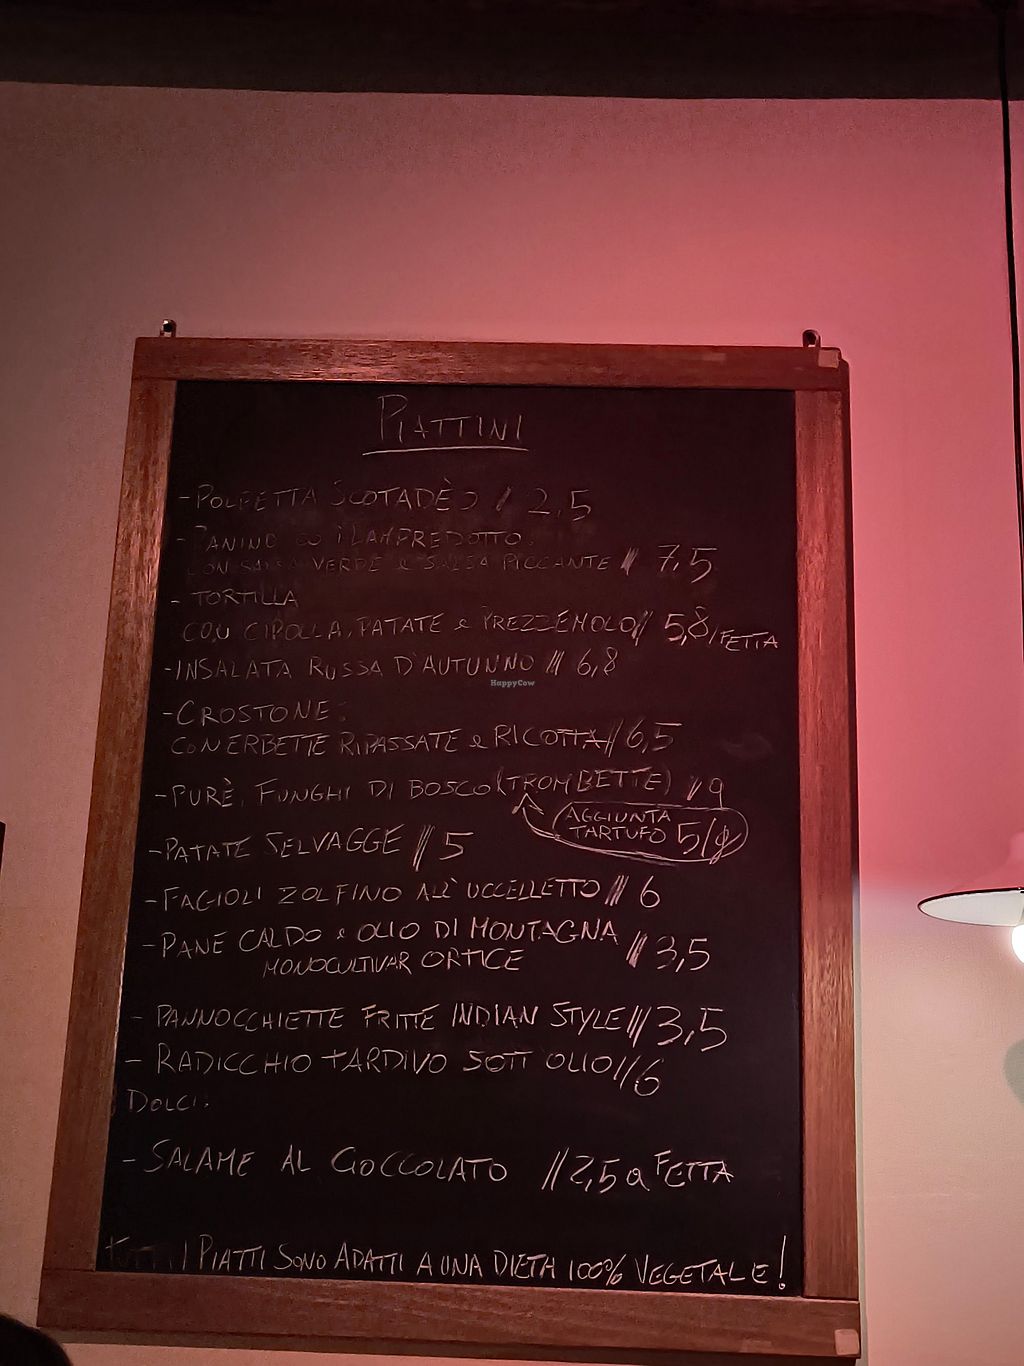 PIATTINI
- POLPETTA SCOTADÈO // 2,5
- PANINO CO' I LAMPREDOTTO:
CON SALSA VERDE e SALSA PICCANTE // 7,5
- TORTILLA
CON CIPOLLA, PATATE e PREZZEMOLO // 5,8/FETTA
- INSALATA RUSSA D'AUTUNNO /// 6,8
HappyCow
- CROSTONE:
CON ERBETTE RIPASSATE e RICOTTA // 6,5
- PURÈ, FUNGHI DI BOSCO (TROMBETTE) // 9
AGGIUNTA
TARTUFO 5/g
- PATATE SELVAGGE // 5
- FAGIOLI ZOLFINO ALL'UCCELLETTO /// 6
- PANE CALDO e OLIO DI MONTAGNA
MONOCULTIVAR ORTICE /// 3,5
- PANNOCCHIETTE FRITTE INDIAN STYLE /// 3,5
- RADICCHIO TARDIVO SOTT'OLIO // 6
DOLCI:
- SALAME AL CIOCCOLATO // 2,5 a FETTA
TUTTI I PIATTI SONO ADATTI A UNA DIETA 100% VEGETALE!